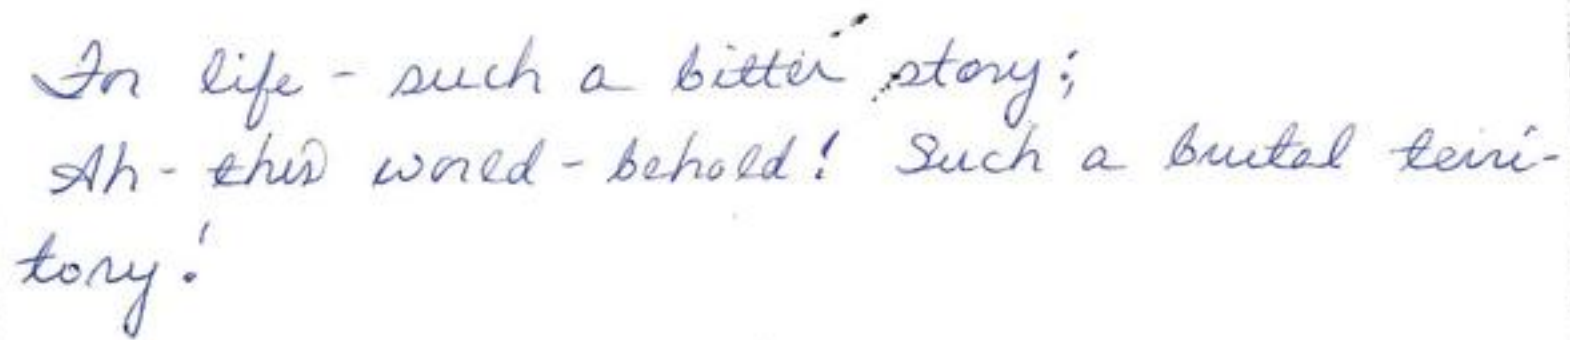 For life - such a bitter story;
Ah - this world - behold! Such a brutal terri-
tory!